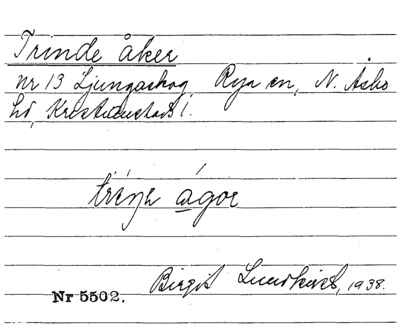 Trinde åker
nr 13 Ljungaskog, Rya sn, N. Åsbo
hd, Kristianstads l.
ågor
Birgit Lundkvist, 1938.
Nr 5502.